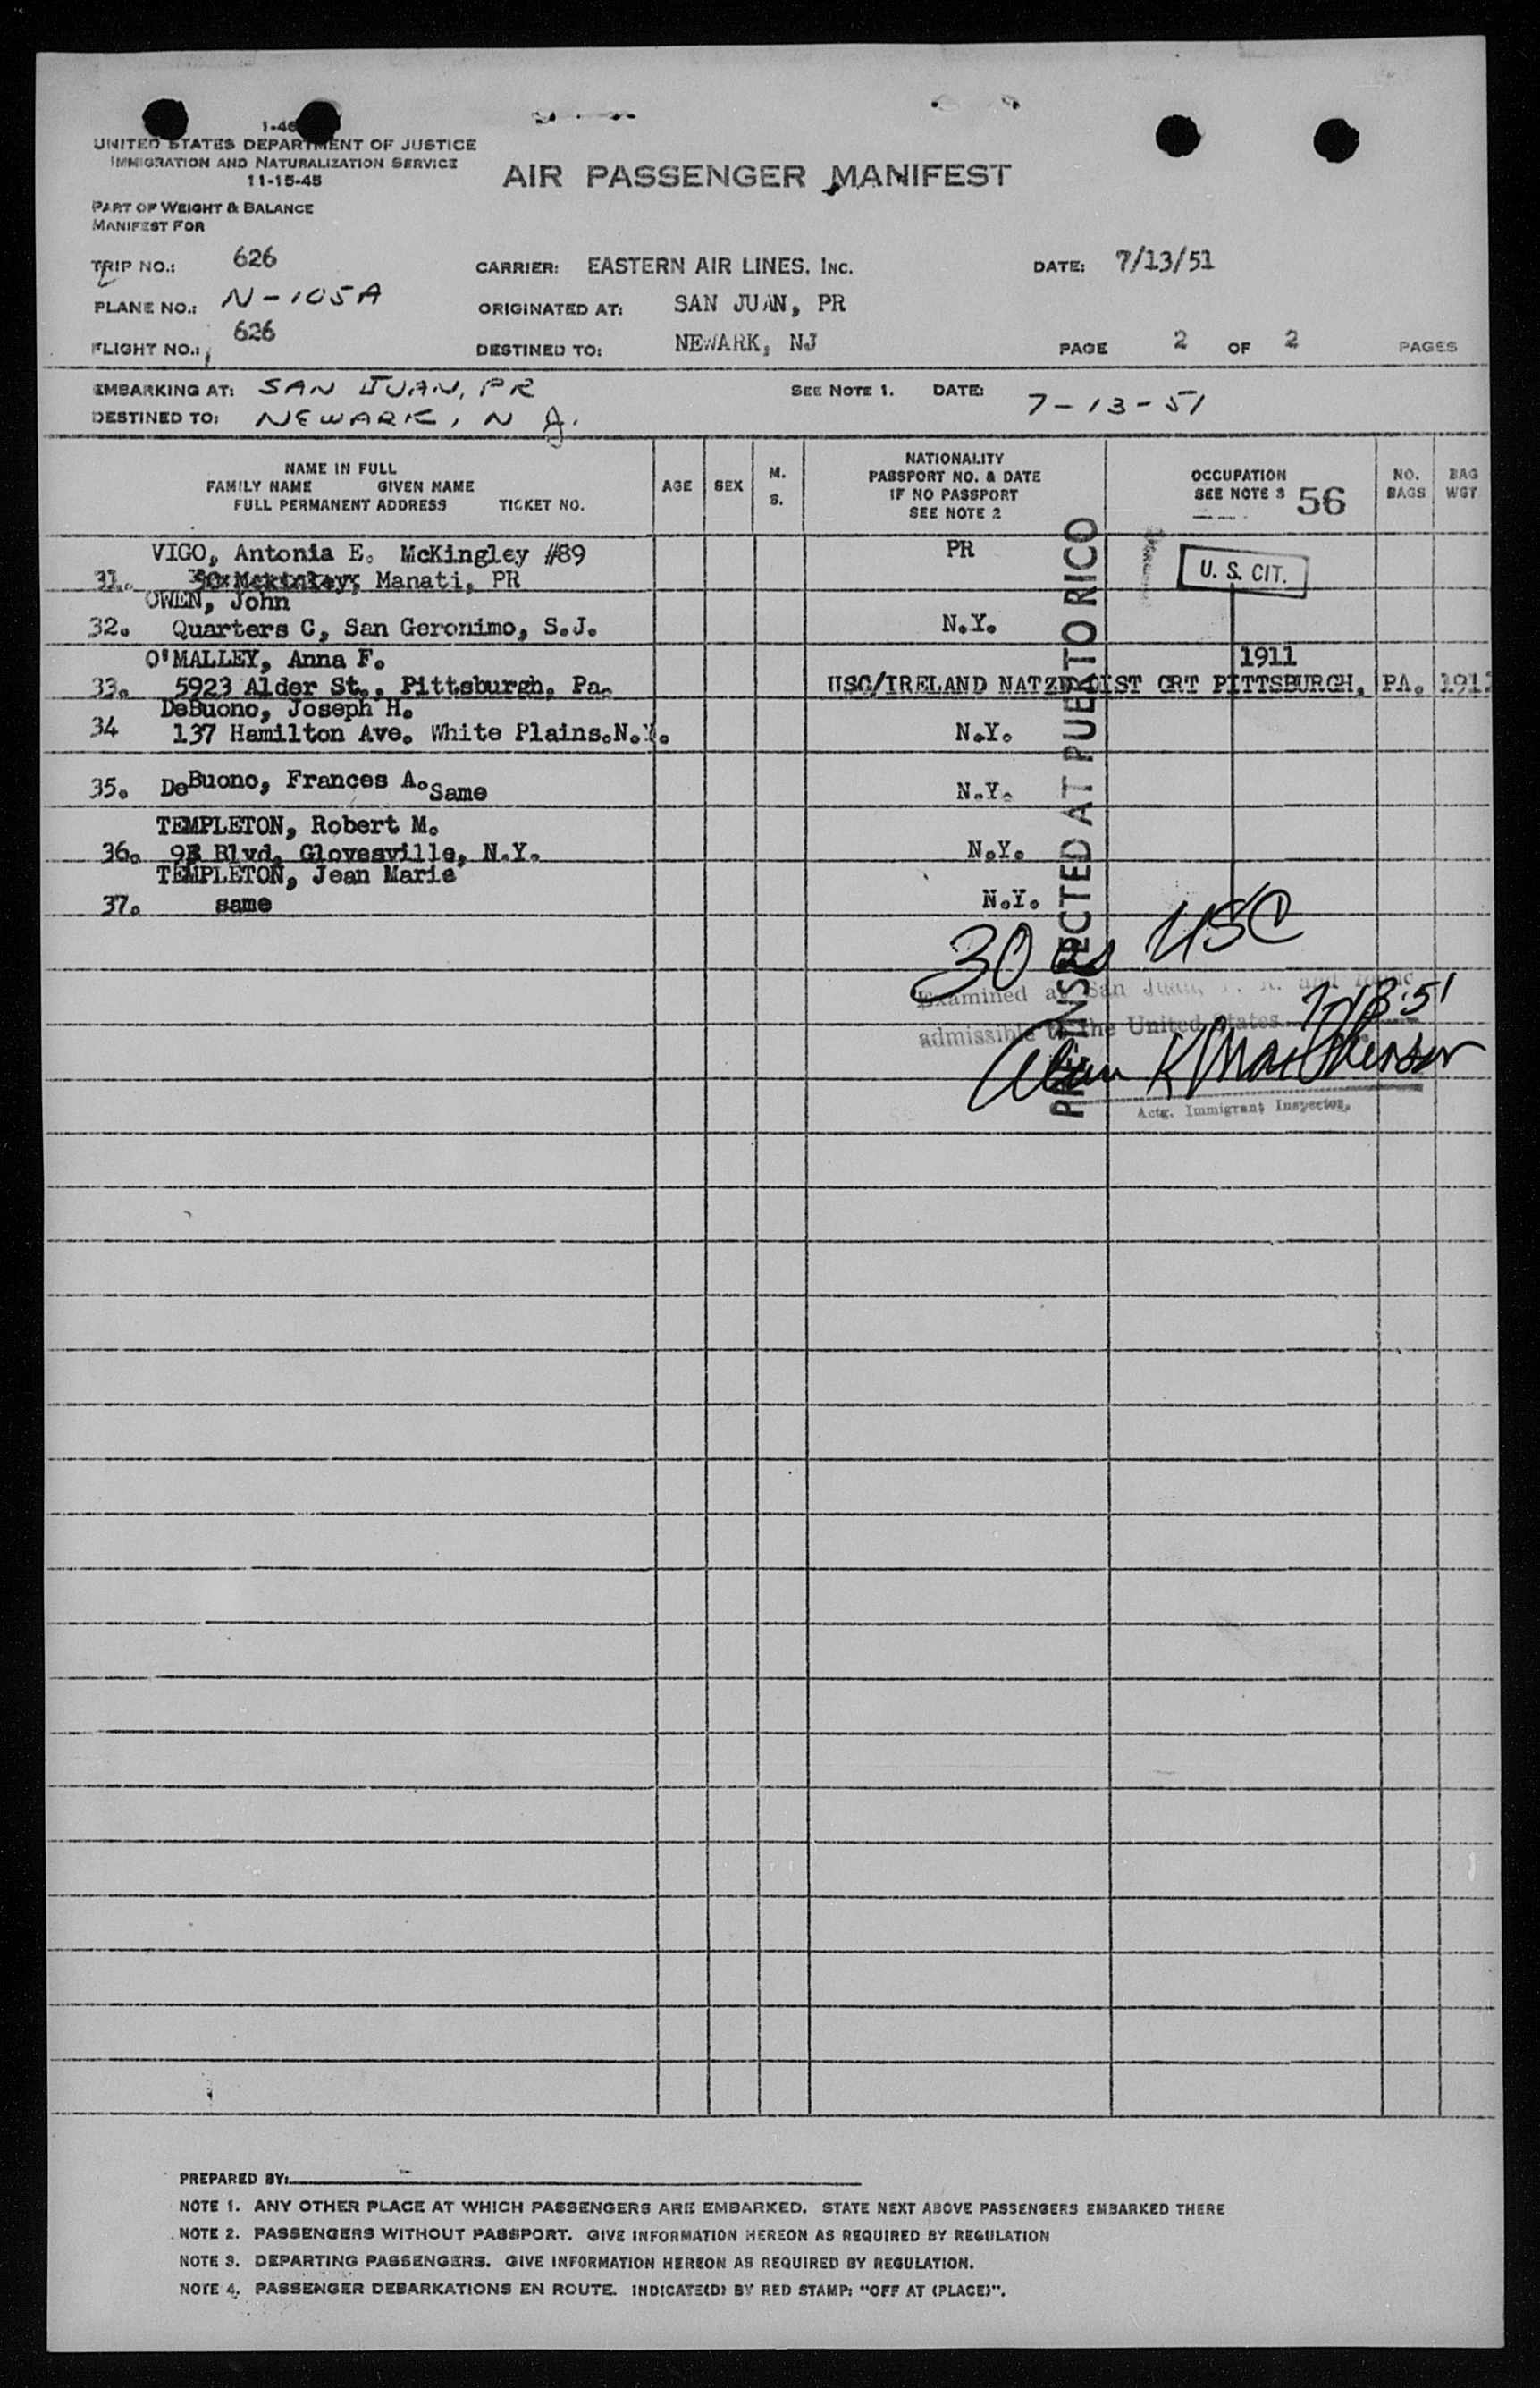 UNITED STATES DEPARTMENT OF JUSTICE
IMMIGRATION AND NATURALIZATION SERVICE
11-15-45
AIR PASSENGER MANIFEST
PART OF WEIGHT & BALANCE
MANIFEST FOR
TRIP NO.: 626 CARRIER: EASTERN AIR LINES, INC. DATE: 7/13/51
PLANE NO.: N-105A ORIGINATED AT: SAN JUAN, PR
FLIGHT NO.: 626 DESTINED TO: NEWARK, NJ PAGE 2 OF 2 PAGES
EMBARKING AT: SAN JUAN, PR SEE NOTE 1. DATE: 7-13-51
DESTINED TO: NEWARK, N J.
NAME IN FULL
FAMILY NAME GIVEN NAME
FULL PERMANENT ADDRESS TICKET NO.
AGE SEX M. S.
NATIONALITY
PASSPORT NO. & DATE
IF NO PASSPORT
SEE NOTE 2
OCCUPATION
SEE NOTE 3 56
NO. BAGS
BAG WGT
VIGO, Antonia E. McKingley #89 PR
31. Manati, PR U. S. CIT.
OWEN, John
32. Quarters C, San Geronimo, S.J. N.Y.
O'MALLEY, Anna F. 1911
33. 5923 Alder St., Pittsburgh, Pa. USC/IRELAND NATZD DIST CRT PITTSBURGH, PA.
DeBuono, Joseph H.
34 137 Hamilton Ave. White Plains.N.Y. N.Y.
35. DeBuono, Frances A. Same N.Y.
TEMPLETON, Robert M.
36. Blvd, Glovesville, N.Y. N.Y.
TEMPLETON, Jean Marie
37. same N.Y.
PRE-INSPECTED AT PUERTO RICO
30 as USC
Examined at San Juan, P. R. and found
admissible to the United States 7-13-51
Actg. Immigrant Inspector.
PREPARED BY:
NOTE 1. ANY OTHER PLACE AT WHICH PASSENGERS ARE EMBARKED. STATE NEXT ABOVE PASSENGERS EMBARKED THERE
NOTE 2. PASSENGERS WITHOUT PASSPORT. GIVE INFORMATION HEREON AS REQUIRED BY REGULATION
NOTE 3. DEPARTING PASSENGERS. GIVE INFORMATION HEREON AS REQUIRED BY REGULATION.
NOTE 4. PASSENGER DEBARKATIONS EN ROUTE. INDICATE(D) BY RED STAMP: "OFF AT (PLACE)".